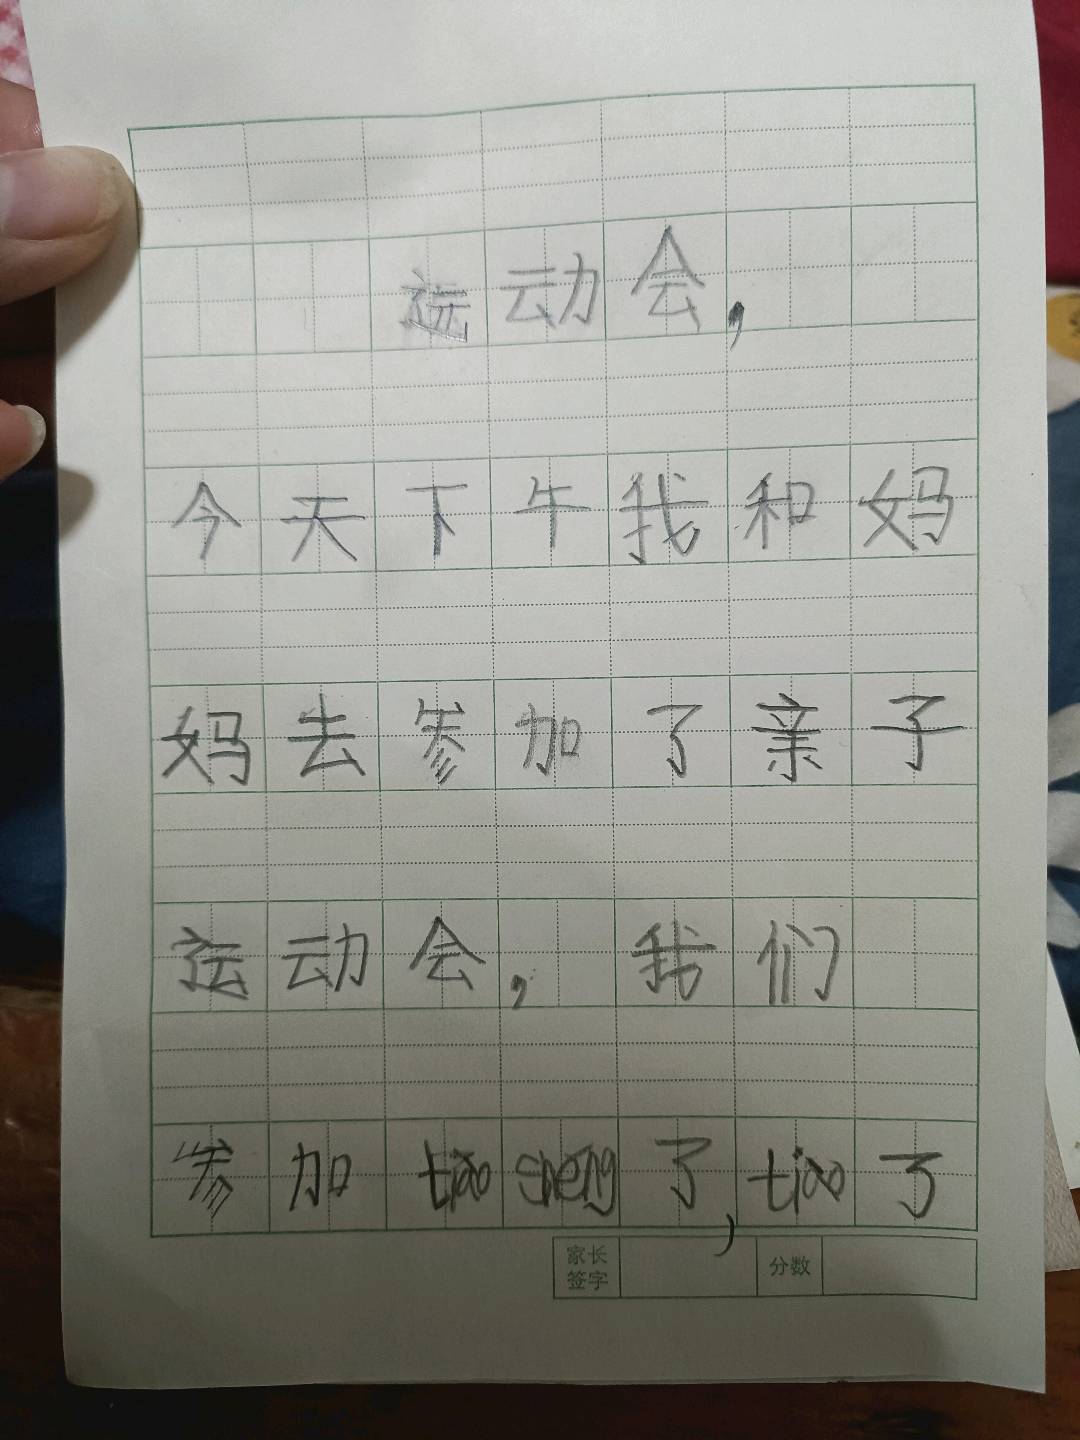 运动会，
今天下午我和妈
妈去参加了亲子
运动会，我们
参加tiao sheng了，tiao了
家长签字 分数